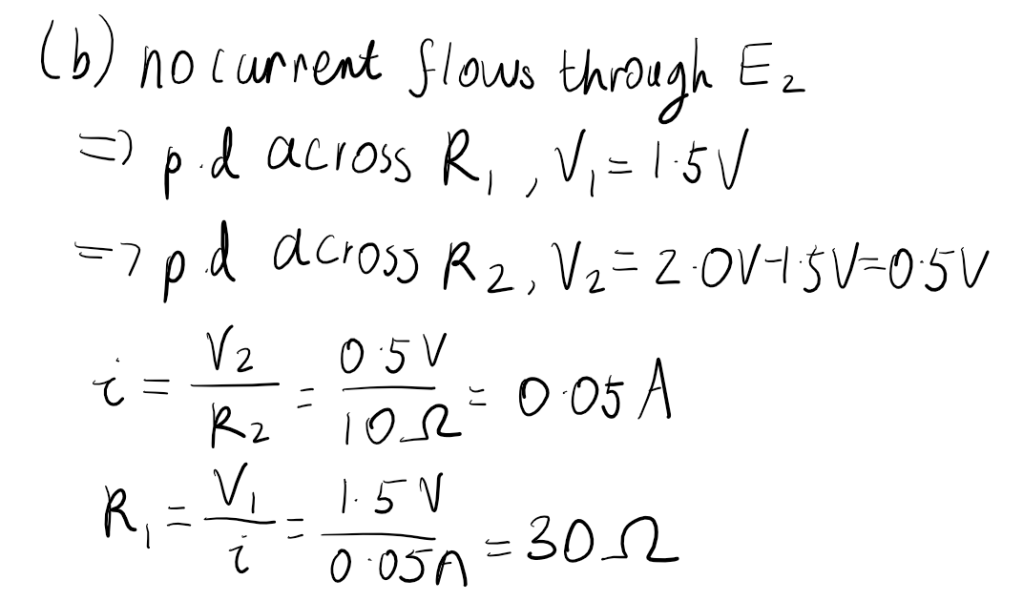 (b) no current flows through E₂
=> p.d across R₁, V₁ = 1.5V
=> p.d across R₂, V₂ = 2.0V-1.5V=0.5V
i = V₂/R₂ = 0.5V/10Ω = 0.05A
R₁ = V₁/i = 1.5V/0.05A = 30Ω